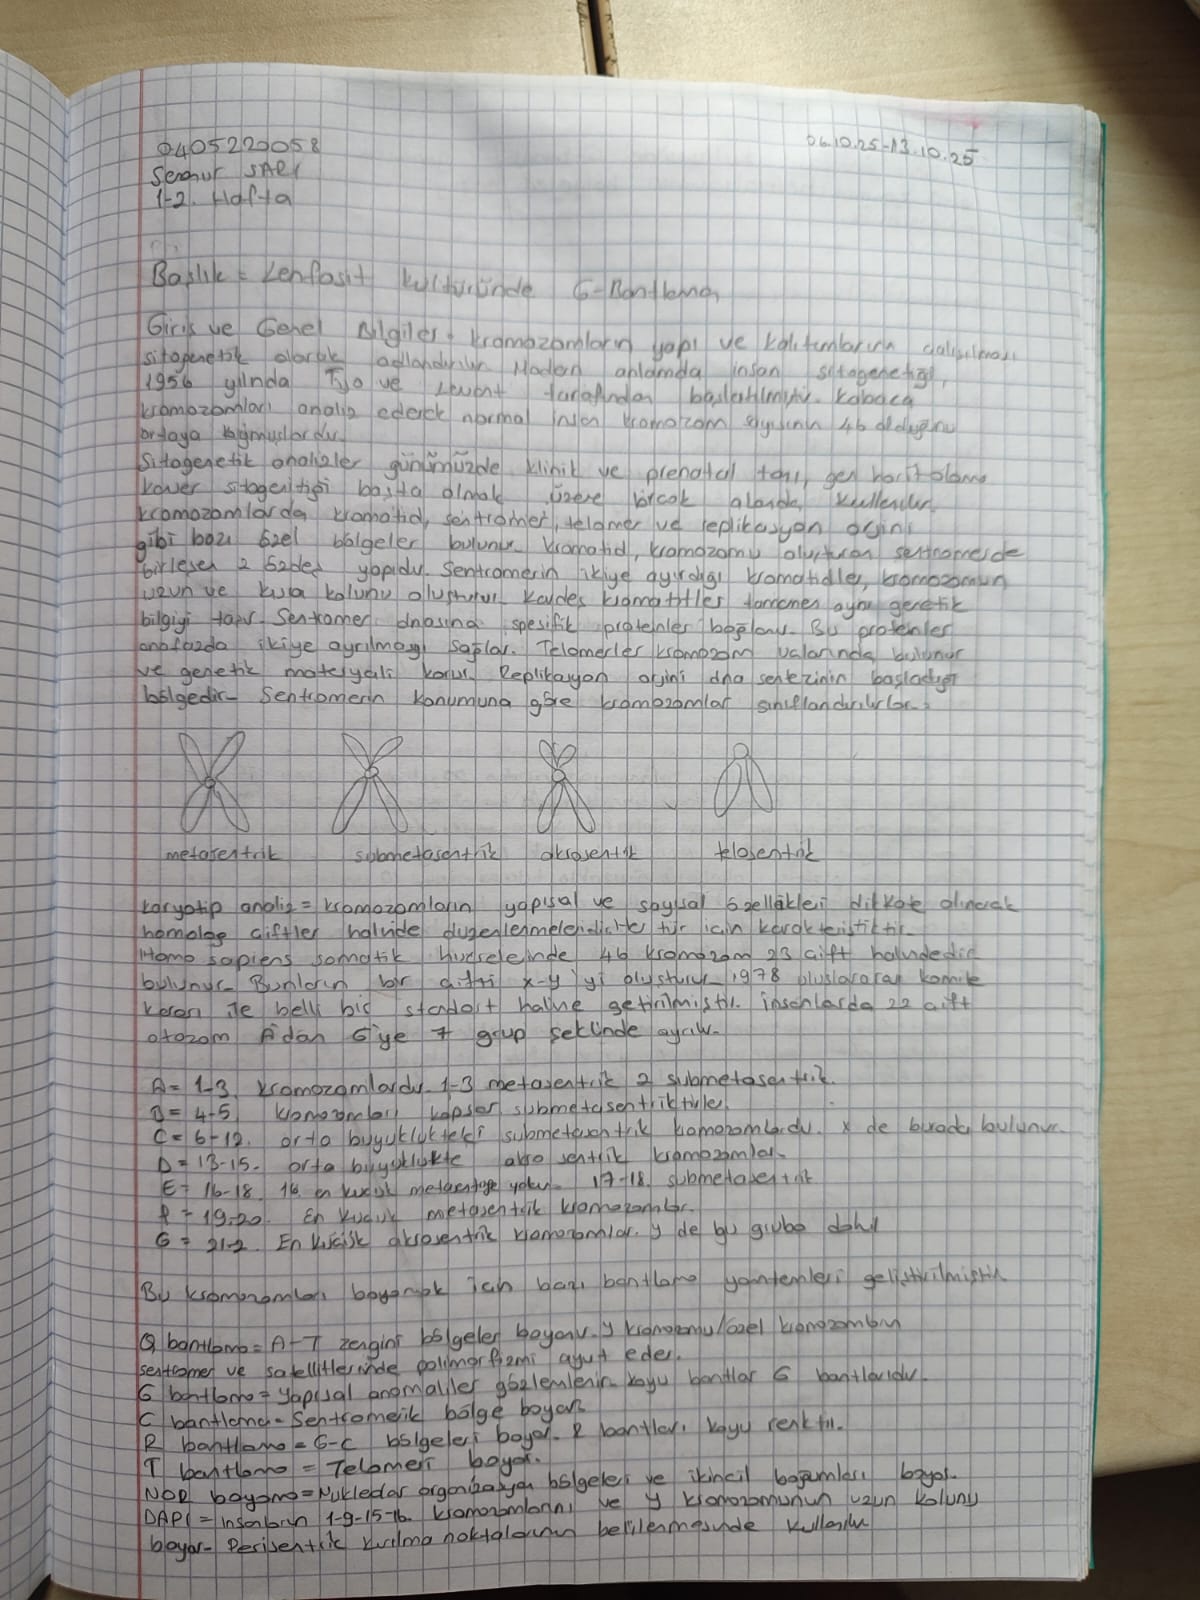 0405220058
Senanur SARI
1-2. Hafta
06.10.25-13.10.25
Başlık = Lenfosit kültüründe G-Bantlama
Giriş ve Genel Bilgiler = kromozomların yapı ve kalıtımlarının çalışılması
sitogenetik olarak adlandırılır. Modern anlamda insan sitogenetiği,
1956 yılında Tjio ve Levant tarafından başlatılmıştır. Kabaca
kromozomları analiz ederek normal insan kromozom sayısının 46 olduğunu
ortaya koymuşlardır.
Sitogenetik analizler günümüzde klinik ve prenatal tanı, gen haritalama
kanser sitogenitiği başta olmak üzere birçok alanda kullanılır.
kromozomlarda kromatid, sentromer, telomer ve replikasyon orjini
gibi bazı özel bölgeler bulunur. Kromatid, kromozomu oluşturan sentromerde
birleşen 2 özdeş yapıdır. Sentromerin ikiye ayırdığı kromatidler, kromozomun
uzun ve kısa kolunu oluşturur. Kardeş kromatitler tamamen aynı genetik
bilgiyi taşır. Sentromer dnasına spesifik proteinler bağlanır. Bu proteinler
anafazda ikiye ayrılmayı sağlar. Telomerler kromozom uçlarında bulunur
ve genetik materyali korur. Replikasyon orjini dna sentezinin başladığı
bölgedir. Sentromerin konumuna göre kromozomlar sınıflandırılırlar.
metasentrik submetasentrik akrosentrik telosentrik
karyotip analiz = kromozomların yapısal ve sayısal özellikleri dikkate alınarak
homolog çiftler halinde düzenlenmeleridir. tür için karakteristiktir.
Homo sapiens somatik hücrelerinde 46 kromozom 23 çift halindedir
bulunur. Bunların bir çifti x-y'yi oluşturur. 1978 uluslararası komite
kararı ile belli bir standart haline getirilmiştir. insanlarda 22 çift
otozom A'dan G'ye 7 grup şeklinde ayrılır.
A = 1-3. kromozomlardır. 1-3 metasentrik 2 submetasentrik.
B = 4-5 kromozomları kapsar submetasentriktirler.
C = 6-12. orta büyüklükteki submetasentrik kromozomlardır. x de burada bulunur.
D = 13-15. orta büyüklükte akrosentrik kromozomlar.
E = 16-18. 16 en küçük metasentriğe yakın. 17-18. submetasentrik
F = 19-20. En küçük metasentrik kromozomlar.
G = 21-2. En küçük akrosentrik kromozomlar. y de bu gruba dahil
Bu kromozomları boyamak için bazı bantlama yöntemleri geliştirilmiştir
Q bantlama = A-T zengini bölgeler boyanır. y kromozomu/özel kromozomların
sentromer ve satellitlerinde polimorfizmi ayırt eder.
G bantlama = yapısal anomaliler gözlemlenir. koyu bantlar G bantlarıdır.
C bantlama = Sentromerik bölge boyar.
R bantlama = G-C bölgeleri boyar. R bantları koyu renktir.
T bantlama = Telomeri boyar.
NOR boyama = Nukledar organizasyon bölgeleri ve ikincil boğumları boyar.
DAPI = insanların 1-9-15-16. kromozomlarını ve y kromozomunun uzun kolunu
boyar. Perisentrik kırılma noktalarının belirlenmesinde kullanılır